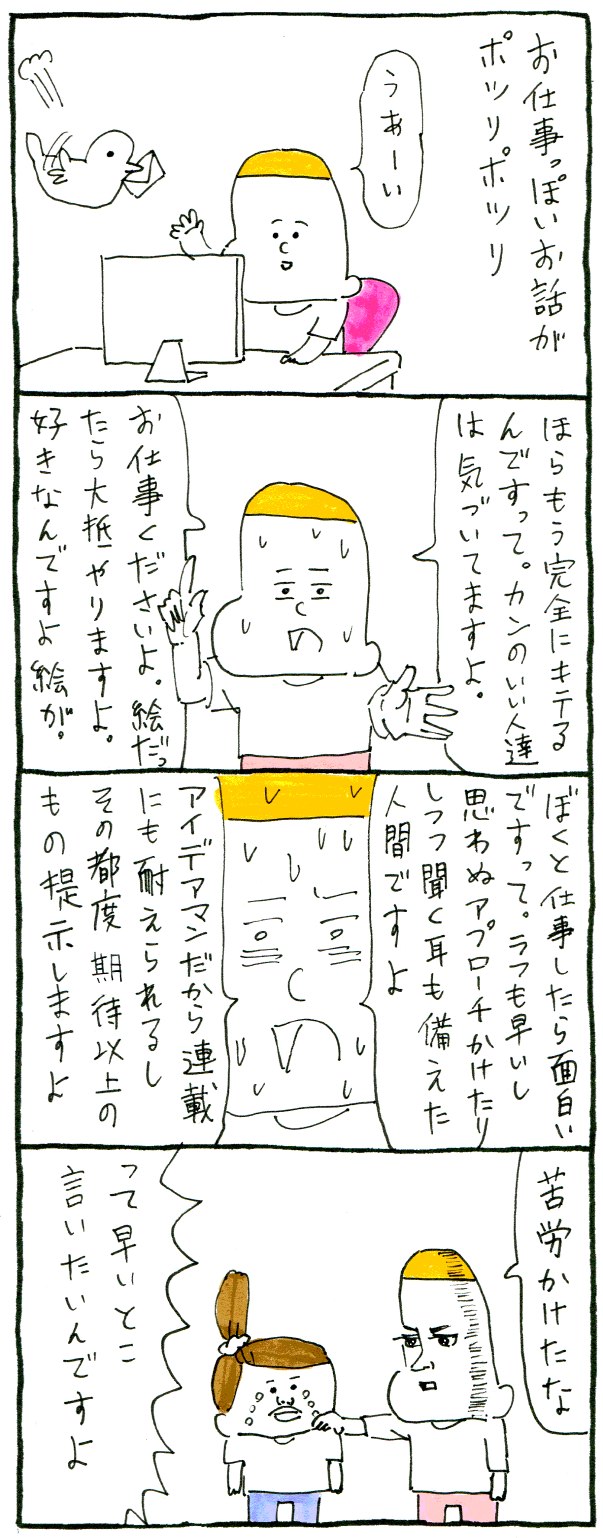 お仕事っぽいお話が
ポツリポツリ
うぁーい
ほらもう完全にキテる
んですって。カンのいい人達
は気づいてますよ。
お仕事くださいよ。絵だっ
たら大抵やりますよ。
好きなんですよ絵が。
ぼくと仕事したら面白い
ですって。ラフも早いし
思わぬアプローチかけたり
しつつ聞く耳も備えた
人間ですよ
アイデアマンだから連載
にも耐えられるし
その都度期待以上の
もの提示しますよ
苦労かけたな
って早いとこ
言いたいんですよ